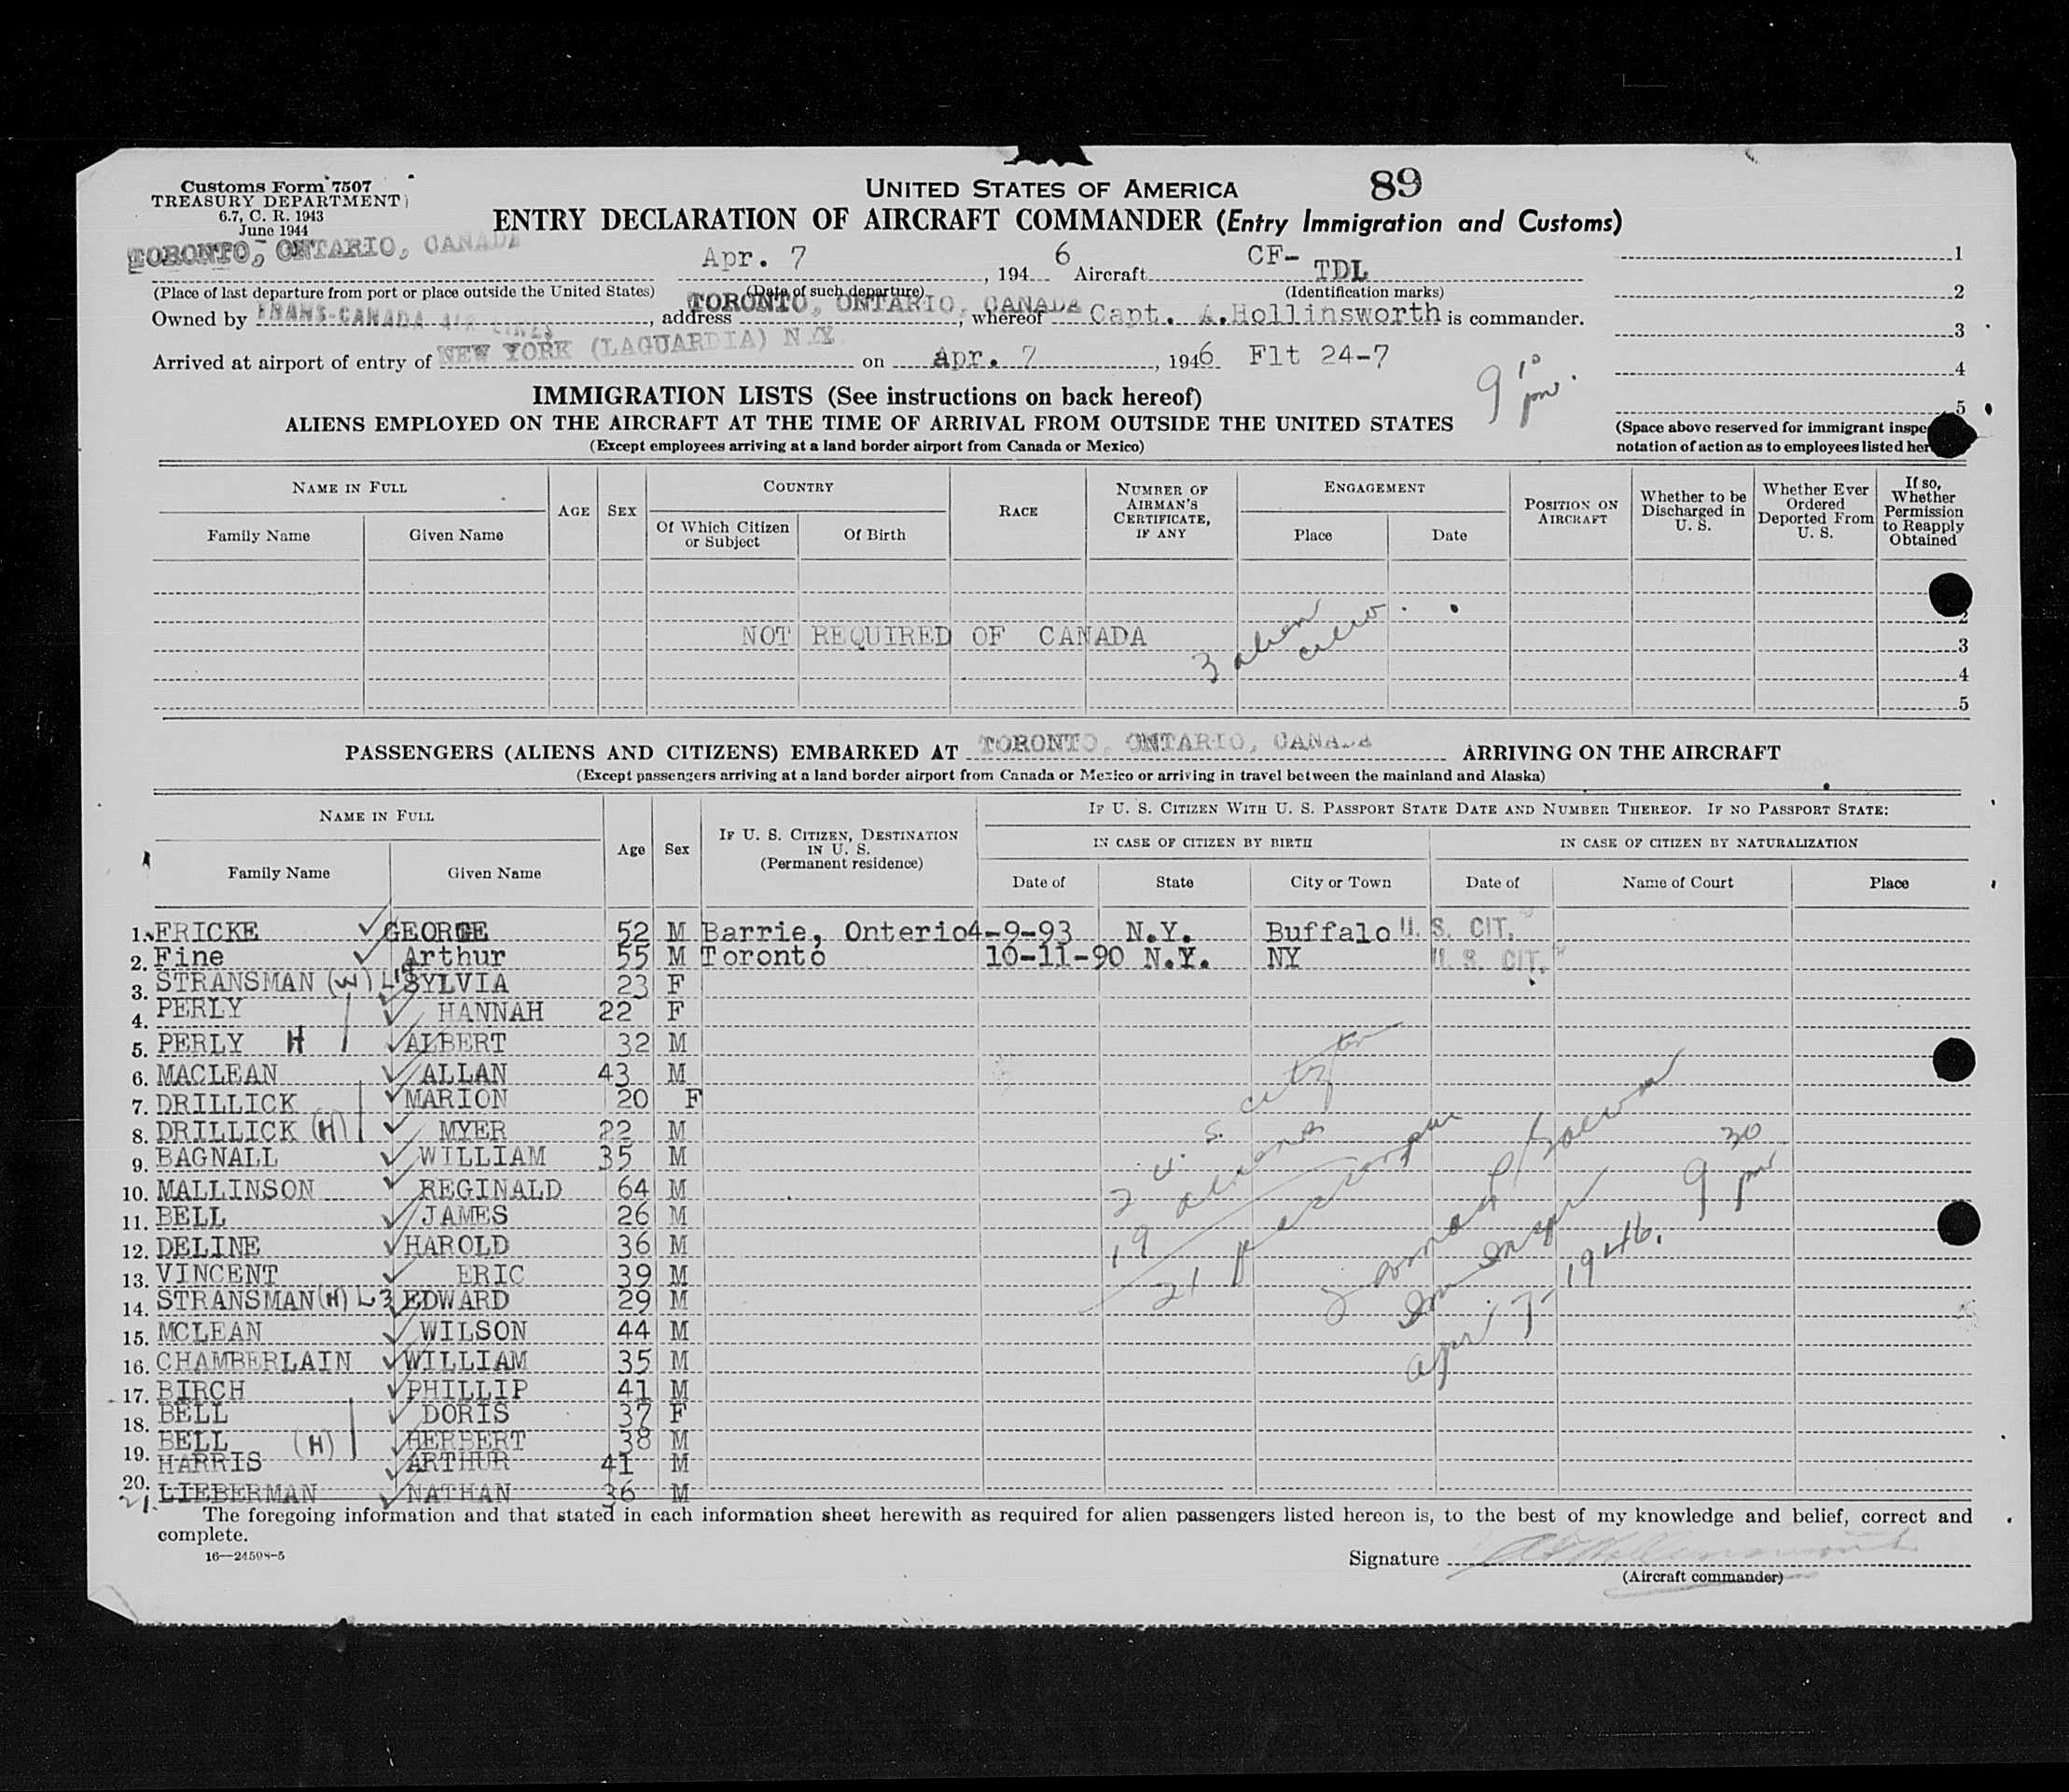 Customs Form 7507
TREASURY DEPARTMENT
6.7, C. R. 1943
June 1944
UNITED STATES OF AMERICA 89
ENTRY DECLARATION OF AIRCRAFT COMMANDER (Entry Immigration and Customs)
TORONTO, ONTARIO, CANADA Apr. 7, 1946 Aircraft CF-TDL
(Place of last departure from port or place outside the United States) (Date of such departure) (Identification marks)
Owned by TRANS-CANADA AIR LINES, address TORONTO, ONTARIO, CANADA, whereof Capt. A.Hollinsworth is commander.
Arrived at airport of entry of NEW YORK (LAGUARDIA) N.Y. on Apr. 7, 1946 Flt 24-7
9 10 pm.
1
2
3
4
5
(Space above reserved for immigrant inspe
notation of action as to employees listed her
IMMIGRATION LISTS (See instructions on back hereof)
ALIENS EMPLOYED ON THE AIRCRAFT AT THE TIME OF ARRIVAL FROM OUTSIDE THE UNITED STATES
(Except employees arriving at a land border airport from Canada or Mexico)
NAME IN FULL
Family Name Given Name
AGE SEX
COUNTRY
Of Which Citizen or Subject Of Birth
RACE
NUMBER OF AIRMAN'S CERTIFICATE, IF ANY
ENGAGEMENT
Place Date
POSITION ON AIRCRAFT
Whether to be Discharged in U. S.
Whether Ever Ordered Deported From U. S.
If so, Whether Permission to Reapply Obtained
2
NOT REQUIRED OF CANADA 3
3 alien crew 4
5
PASSENGERS (ALIENS AND CITIZENS) EMBARKED AT TORONTO, ONTARIO, CANADA ARRIVING ON THE AIRCRAFT
(Except passengers arriving at a land border airport from Canada or Mexico or arriving in travel between the mainland and Alaska)
NAME IN FULL
Family Name Given Name
Age Sex
IF U. S. CITIZEN, DESTINATION IN U. S. (Permanent residence)
IF U. S. CITIZEN WITH U. S. PASSPORT STATE DATE AND NUMBER THEREOF. IF NO PASSPORT STATE:
IN CASE OF CITIZEN BY BIRTH IN CASE OF CITIZEN BY NATURALIZATION
Date of State City or Town Date of Name of Court Place
1. ERICKE GEORGE 52 M Barrie, Onterio 4-9-93 N.Y. Buffalo U. S. CIT.
2. Fine Arthur 55 M Toronto 10-11-90 N.Y. NY U. S. CIT.
3. STRANSMAN (W) L14 SYLVIA 23 F
4. PERLY HANNAH 22 F
5. PERLY H ALBERT 32 M
6. MACLEAN ALLAN 43 M
7. DRILLICK MARION 20 F
8. DRILLICK (H) MYER 22 M
9. BAGNALL WILLIAM 35 M
10. MALLINSON REGINALD 64 M
11. BELL JAMES 26 M
12. DELINE HAROLD 36 M
13. VINCENT ERIC 39 M
14. STRANSMAN (H) L3 EDWARD 29 M
15. MCLEAN WILSON 44 M
16. CHAMBERLAIN WILLIAM 35 M
17. BIRCH PHILLIP 41 M
18. BELL DORIS 37 F
19. BELL (H) HERBERT 38 M
20. HARRIS ARTHUR 41 M
21. LIEBERMAN NATHAN 36 M
2 U. S. citz
19 aliens
21 passengers
Imm Inspr
April 7- 1946. 9 30 pm
The foregoing information and that stated in each information sheet herewith as required for alien passengers listed hereon is, to the best of my knowledge and belief, correct and
complete.
16—24598-5
Signature
(Aircraft commander)